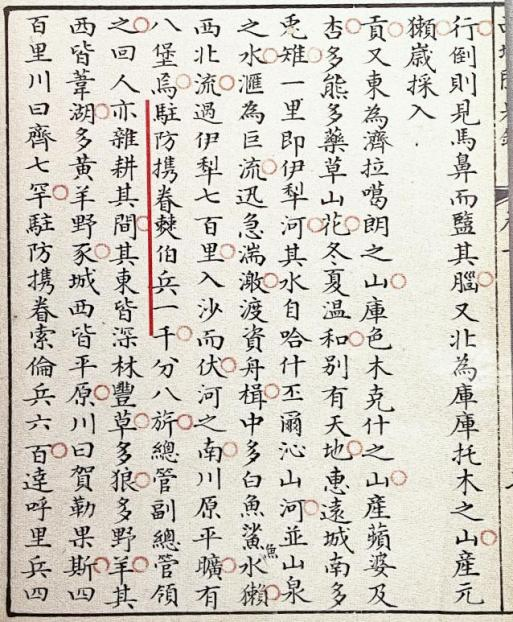 行倒則見馬鼻而盬其腦又北為庫庫托木之山產元
獺歲採入
貢又東為濟拉噶朗之山庫色木克什之山產蘋婆及
杏多熊多藥草山花冬夏溫和別有天地惠遠城南多
兎雉一里即伊犁河其水自哈什丕爾沁山河並山泉
之水滙為巨流迅急湍潡渡資舟楫中多白魚鯊魚水獺
西北流過伊犁七百里入沙而伏河之南川原平曠有
八堡焉駐防携眷僰伯兵一千分八旂總管副總管領
之回人亦雜耕其間其東皆深林豐草多狼多野羊其
西皆葦湖多黃羊野豕城西皆平原川曰賀勒果斯四
百里川曰齊七罕駐防携眷索倫兵六百達呼里兵四